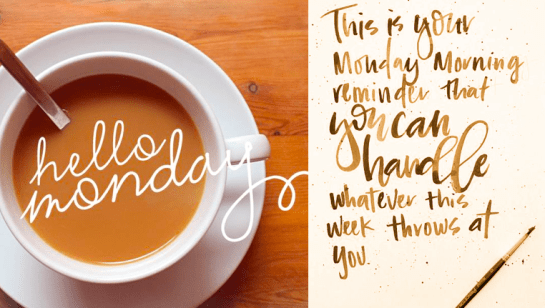 hello
monday
This is your
Monday Morning
reminder that
you can
handle
whatever this
week throws at
you.